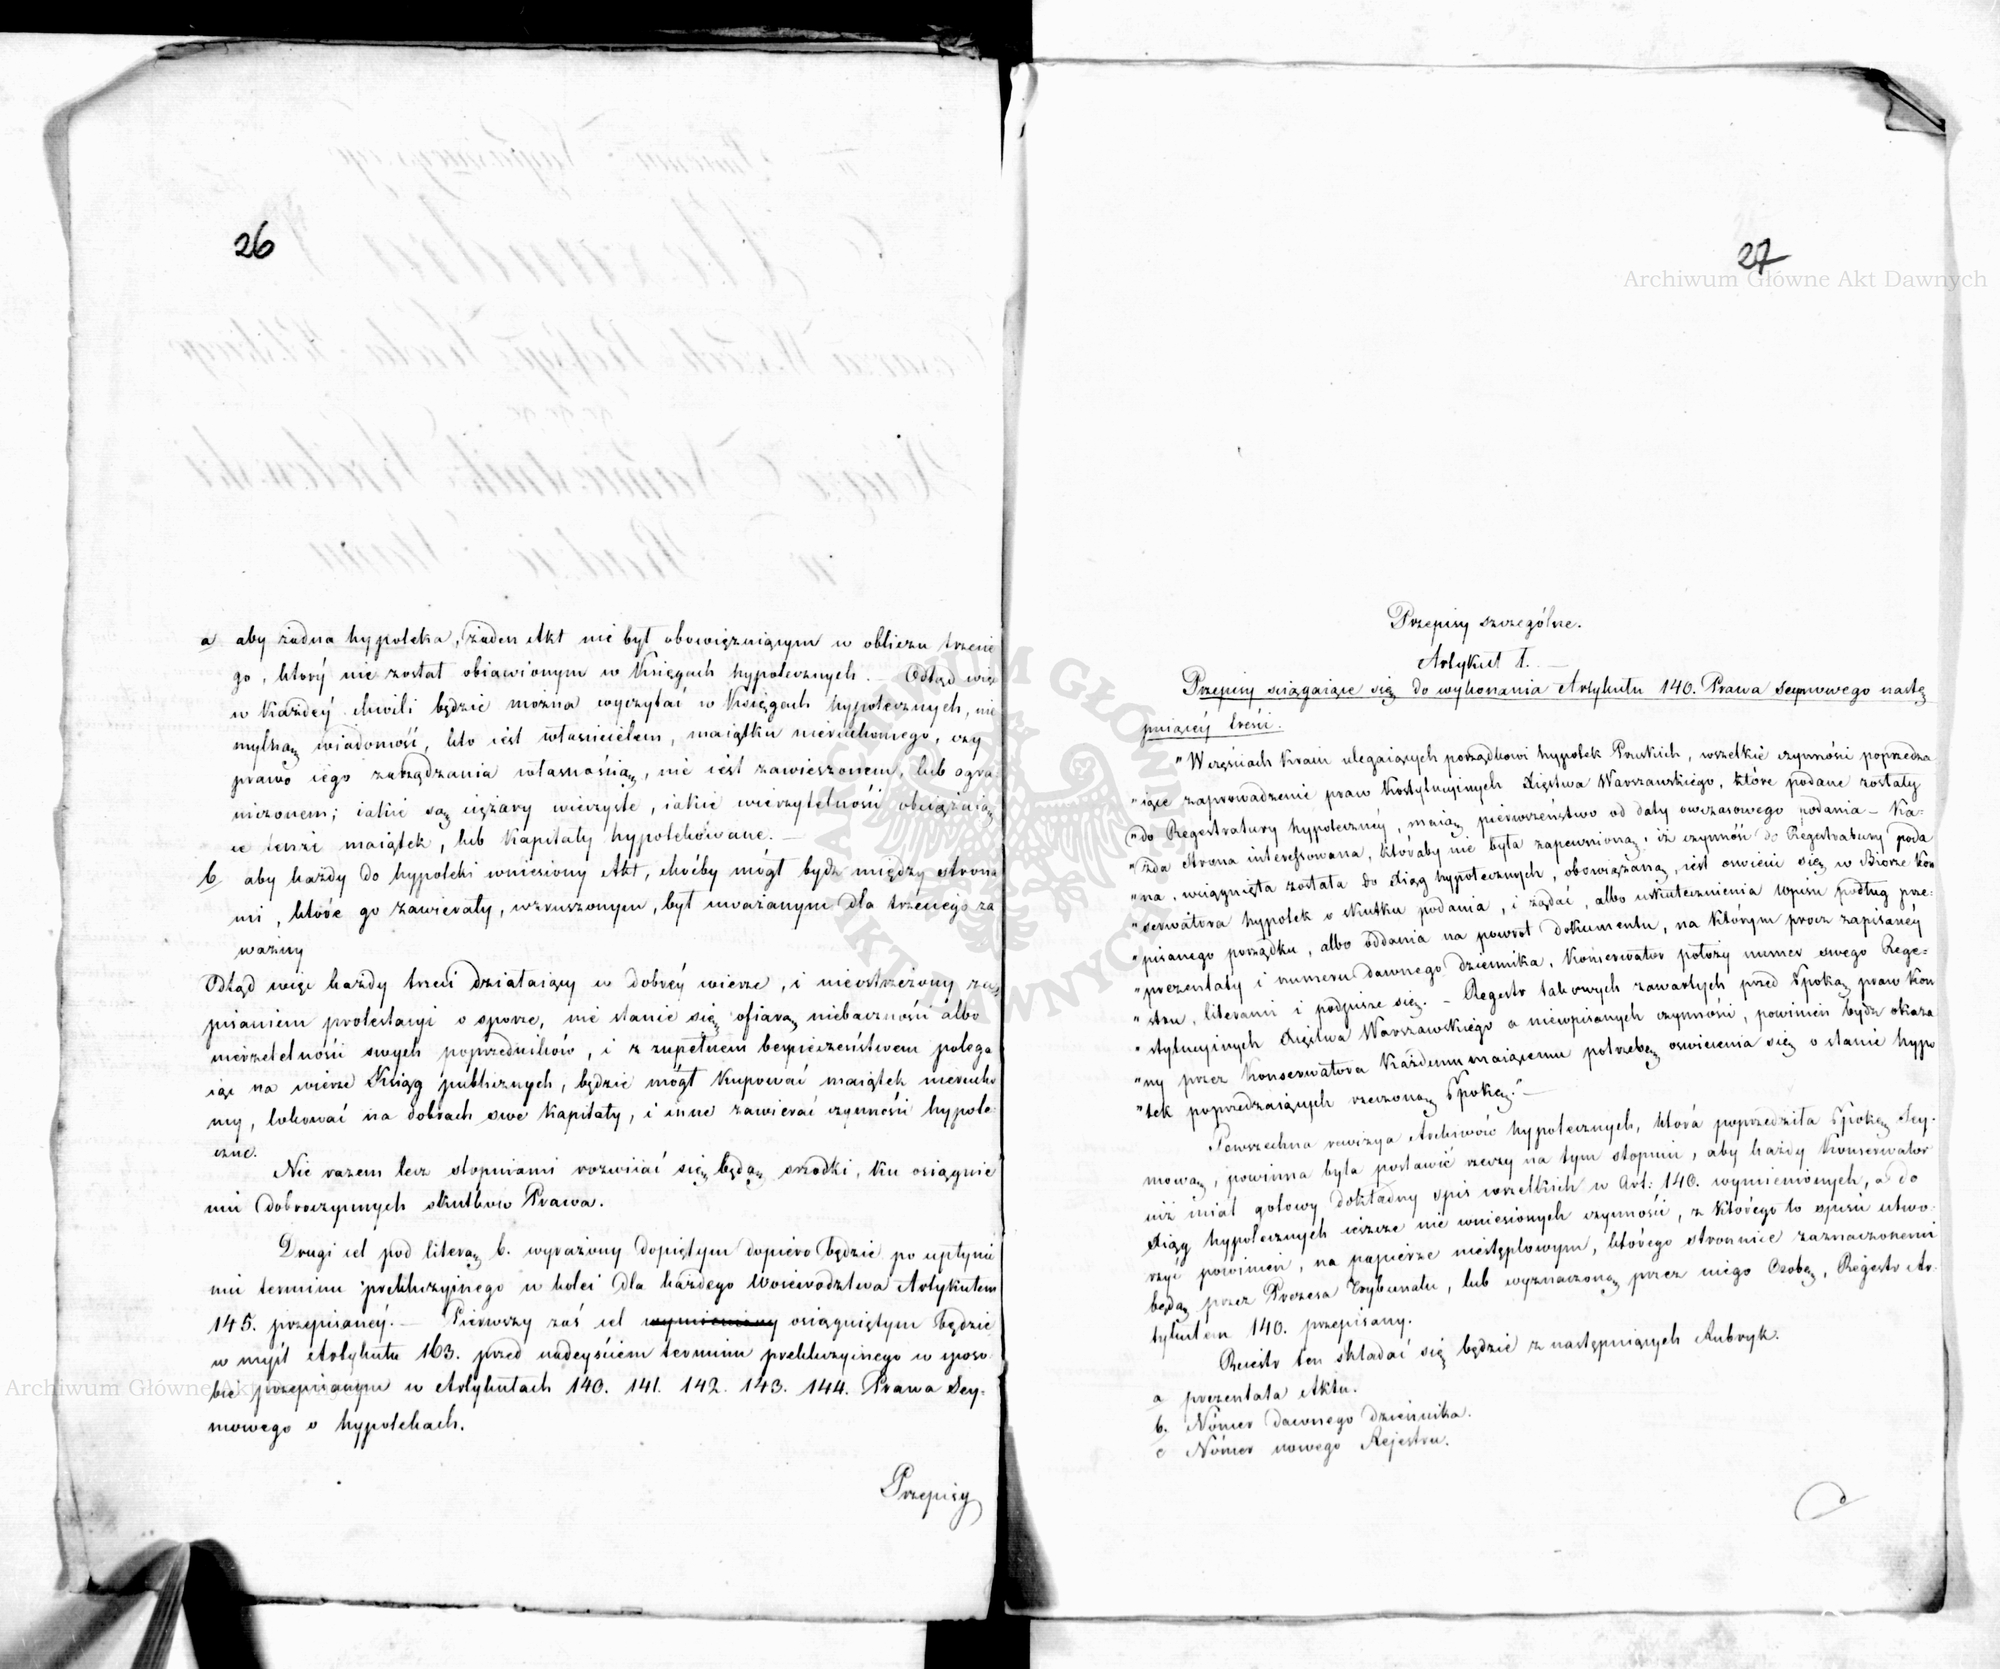 26
a aby żadna hypoteka, żaden Akt nie był obowięzuiącym w obliczu trzecie
go, który nie został obiawionym w Księgach hypotecznych. Odtąd więc
w każdey chwili będzie można wyczytać w Księgach hypotecznych, nie
mylną wiadomość, kto iest właścicielem, maiątku nieruchomego, czy
prawo iego zarządzania własnością, nie iest zawieszonem, lub ogra-
niczonem; iakie są ciężary wieczyste, iakie wierzytelności obciążaią
ce tenże maiątek, lub Kapitały hypotekowane. —
b aby każdy do hypoteki wniesiony Akt, choćby mógł bydź między strona
mi, które go zawierały, wzruszonym, był uważanym dla trzeciego za
ważny
Odtąd więc każdy trzeci działaiący w dobréy wierze, i nieostrzeżony za
pisaniem protestacyi o sporze, nie stanie się ofiarą niebaczności albo
nierzetelności swych poprzedników, i z zupełnem bezpieczeństwem polega
iąc na wierze Ksiąg publicznych, będzie mógł kupować maiątek nierucho
my, lokować na dobrach swe Kapitały, i inne zawierać czynności hypote-
czne.
Nie razem lecz stopniami rozwiiać się będą srzodki, ku osiągnie
niu dobroczynnych skutków Prawa.
Drugi cel pod literą b. wyrażony dopiętym dopiéro będzie po upłynie
niu terminu prekluzyinego w kolei dla każdego Woiewództwa Artykułem
145. przepisanéy. — Pierwszy zaś cel wymieniony osiągniętym będzie
w myśl Artykułu 163. przed nadeyściem terminu prekluzyinego w sposo
bie przepisanym w Artykułach 140. 141. 142. 143. 144. Prawa Sey-
mowego o hypotekach.
Przepisy
27
Przepisy szczególne.
Artykuł 1. —
Przepisy ściągaiące się do wykonania Artykułu 140. Prawa Seymowego nastę
puiącéy treści.
"W częściach Kraiu ulegaiących porządkowi hypotek Pruskich, wszelkie czynności poprzedza
"iące zaprowadzenie praw Kostytucyinych Xięstwa Warszawskiégo, które podane zostały
"do Regestratury hypoteczney, maią pierwszeństwo od daty owczasowego podania – Ka-
"żda Strona interessowana, któraby nie była zapewnioną, iż czynność do Regestratury poda
"na, wciągnięta została do Xiąg hypotecznych, obowiązaną iest oswiecić się w Biorze Kon
"serwatora hypotek o skutku podania, i żądać, albo uskutecznienia wpisu podług prze-
"pisanego porządku, albo oddania na powrot dokumentu, na którym procz zapisanéy
"prezentaty i numeru dawnego dziennika, Konserwator położy numer swego Rege-
"stru, literami i podpisze się. – Regestr takowych zawartych przed Epoką praw Kon
"stytucyinych Xięstwa Warszawskiégo a niewpisanych czynności, powinien bydź okaza
"ny przez Konserwatora każdemu maiącemu potrzebę oswiecenia się o stanie hypo
"tek poprzedzaiących rzeczoną Epokę." —
Powszechna rewizya Archiwów hypotecznych, która poprzedziła Epokę Sey-
mową, powinna była postawić rzeczy na tym stopniu, aby każdy Konserwator
iuż miał gotowy dokładny spis wszelkich w Art: 140. wymienionych, a do
Xiąg hypotecznych ieszcze nie wniesionych czynności, z którégo to spisu utwo-
rzyć powinien, na papierze niestęplowym, którego stronnice zaznaczonemi
będą przez Prezesa Trybunału, lub wyznaczoną przez niego Osobę, Regestr Ar-
tykułem 140. przepisany.
Reiestr ten składać się będzie z następuiących Rubryk.
a prezentata Aktu.
b. Nómer dawnego dziennika.
c Nómer nowego Rejestru.
d
Archiwum Główne Akt Dawnych
Archiwum Główne Akt Dawnych
ARCHIWUM GŁÓWNE AKT DAWNYCH